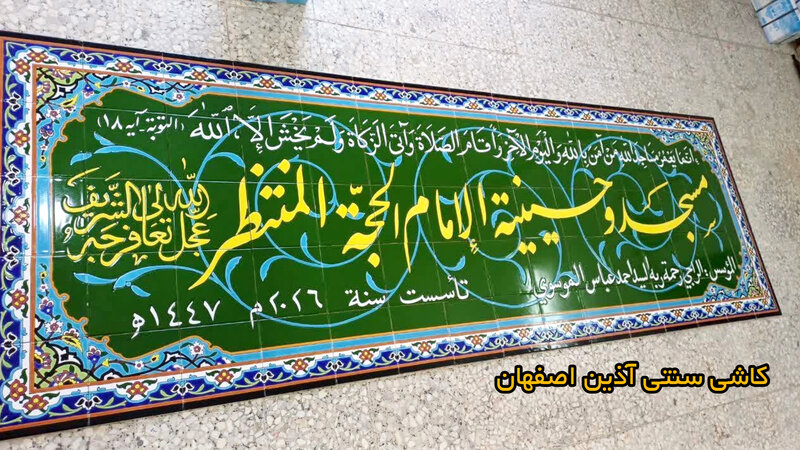 انما يعمر مساجد الله من آمن بالله واليوم الآخر وأقام الصلاة وآتى الزكاة ولم يخش إلا الله (التوبة - آية ١٨)
مسجد وحسينية الإمام الحجة المنتظر
عجل الله تعالى فرجه الشريف
المؤسس: الراجي رحمة ربه السيد احمد عباس الموسوي
تأسست سنة ٢٠٢٦م ١٤٤٧ه
کاشی سنتی آذین اصفهان